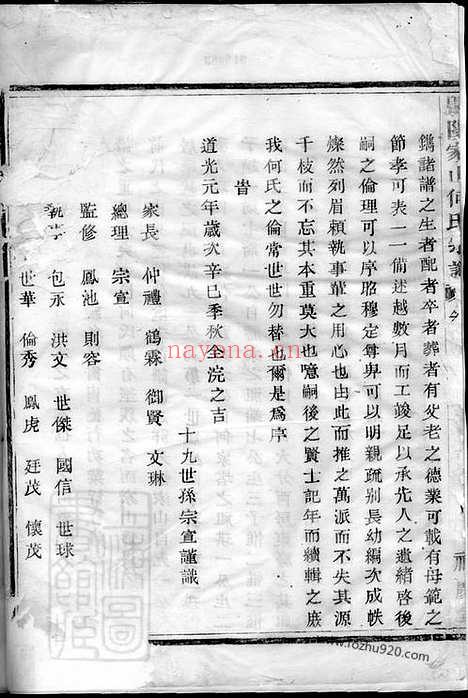 鐫諸譜之生者配者卒者葬者有父老之德業可載有母範之
節孝可表一一備述越數月而工竣足以承先人之遺緒啓後
嗣之倫理可以序昭穆定尊卑可以明親疏别長幼編次成帙
燦然列眉頼執事輩之用心也由此而推之萬派而不失其源
千枝而不忘其本重莫大也噫嗣後之賢士記年而續輯之庶
我何氏之倫常世世勿替也爾是爲序
旹
道光元年歲次辛巳季秋全浣之吉
十九世孫宗宣謹識
家長 仲禮 鶴霖 御賢 文琳
總理 宗宣
監修 鳳池 則容
執事 包永 洪文 世傑 國信 世球
世華 倫秀 鳳虎 廷茂 懷茂
nayona.cn
www.fozhu920.com